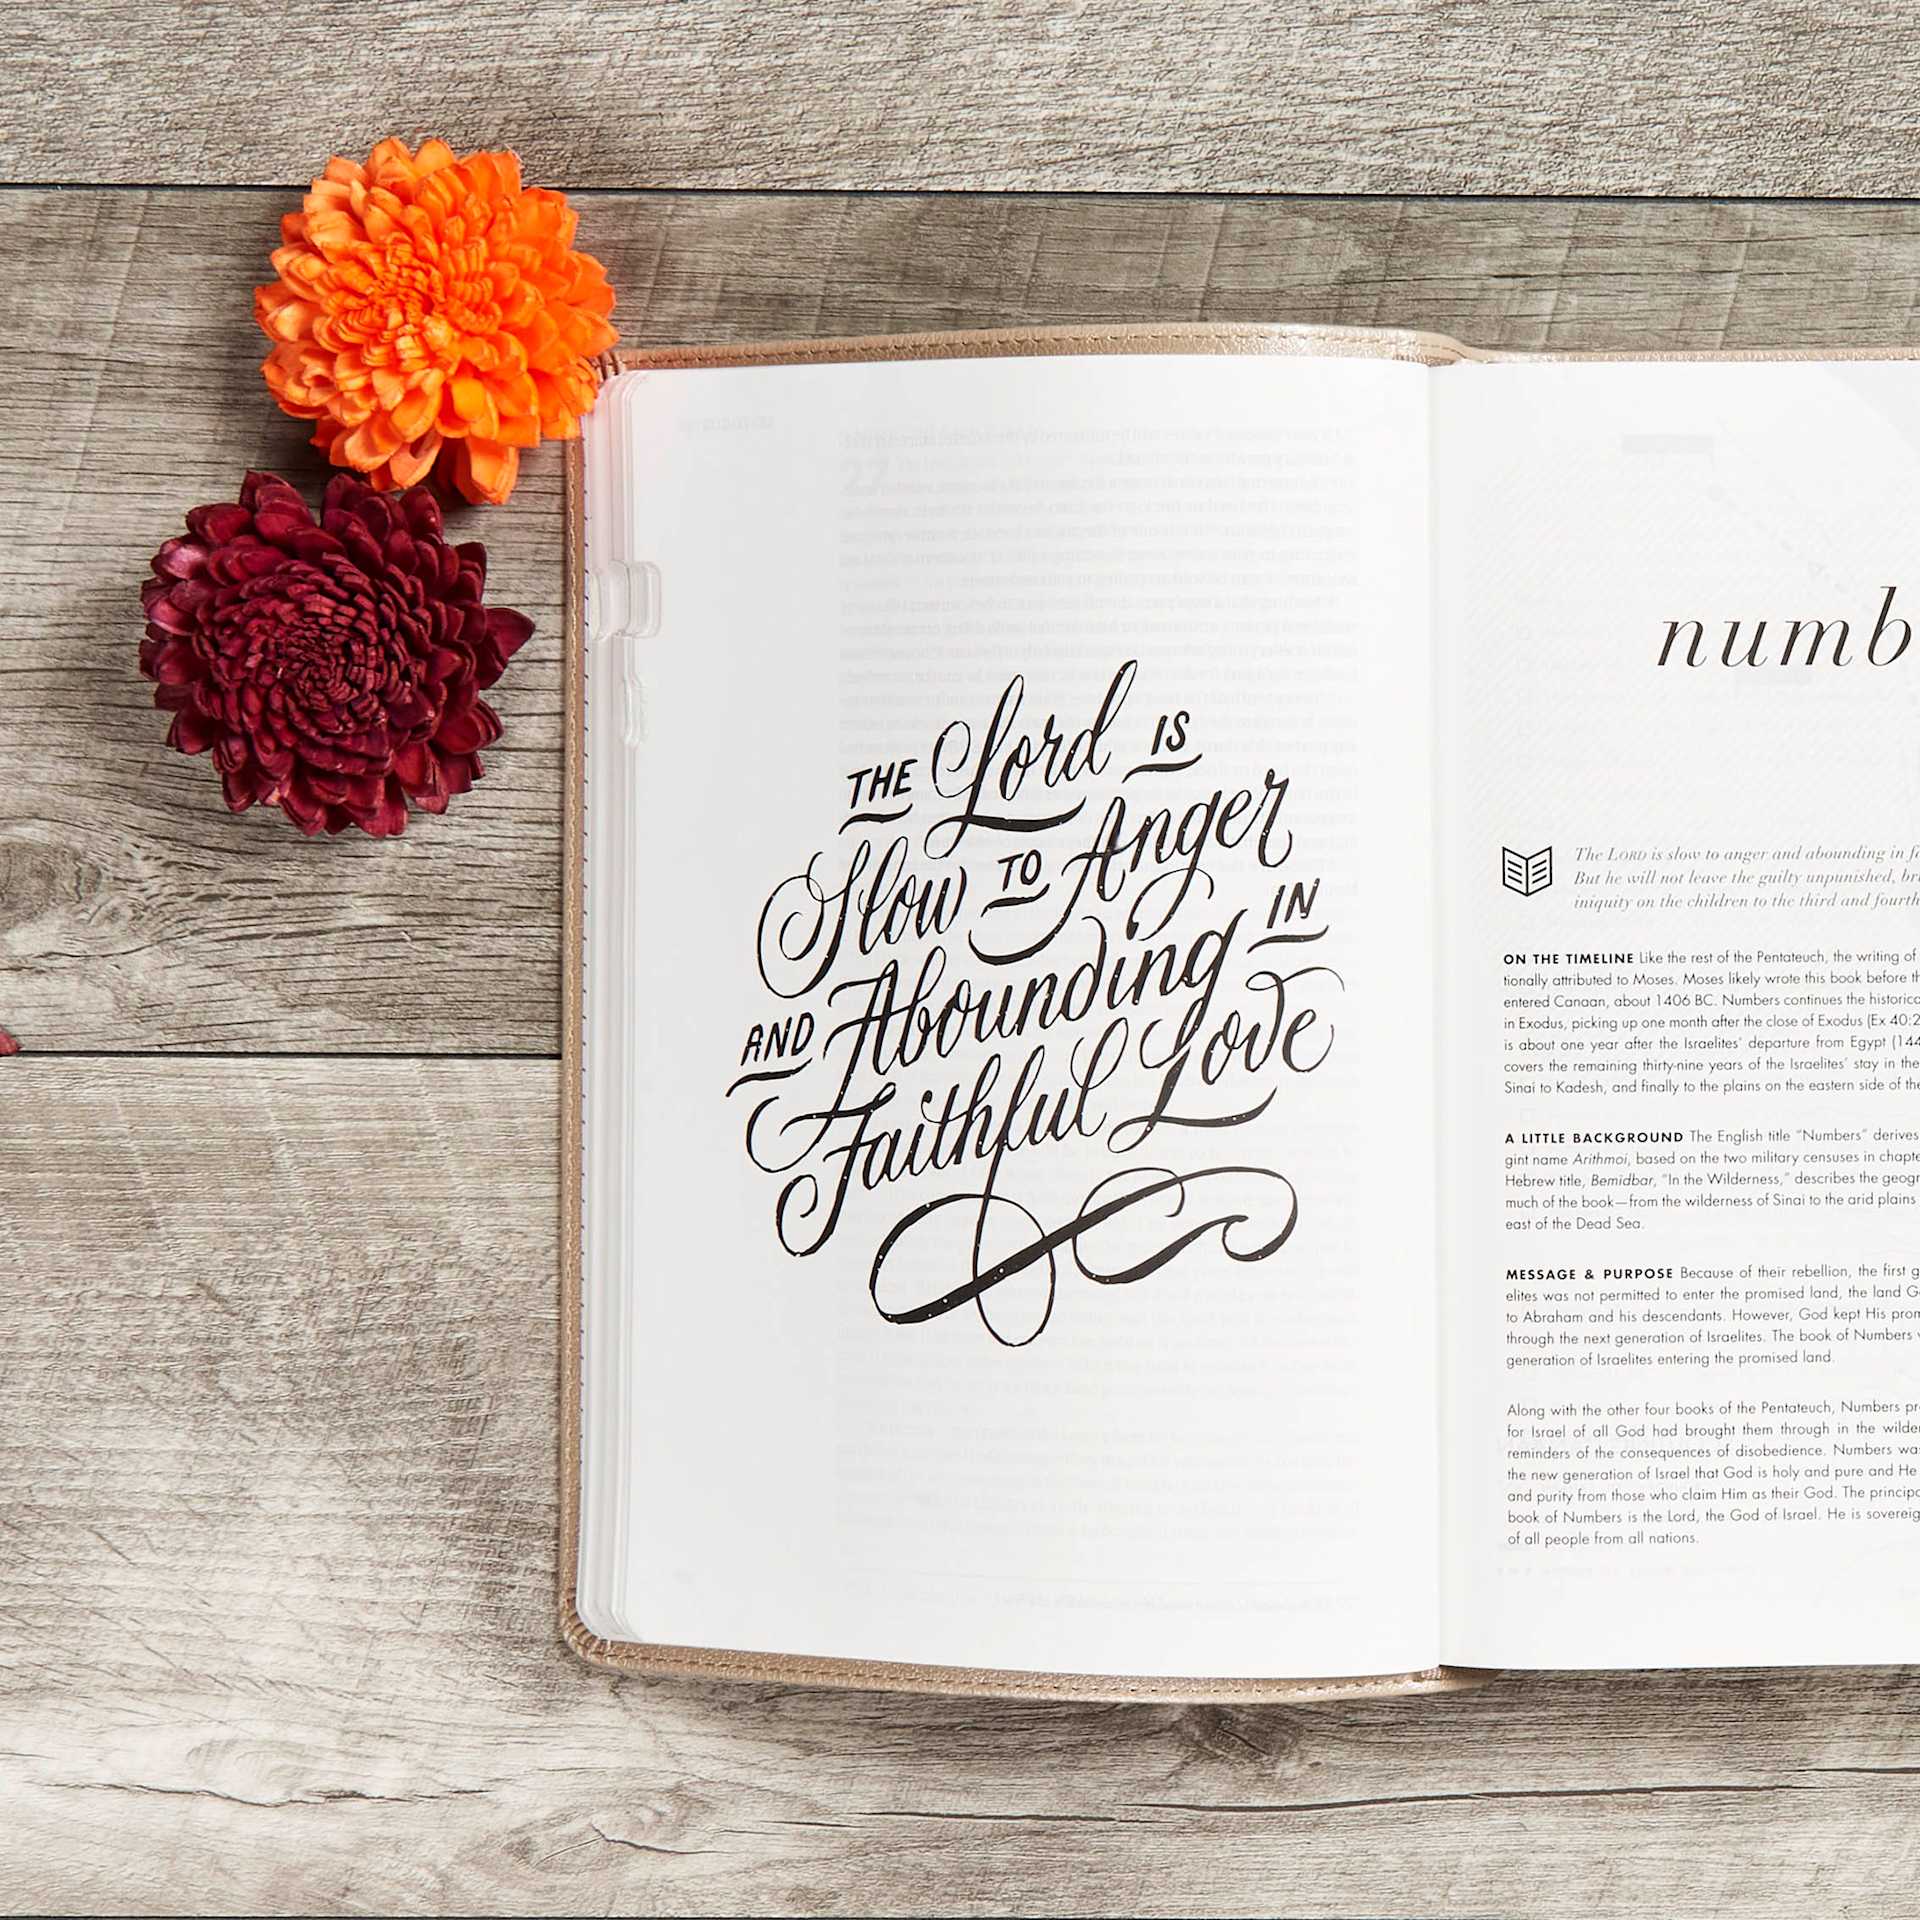 THE Lord IS
Slow TO Anger
AND Abounding IN
Faithful Love
numb
The LORD is slow to anger and abounding in
But he will not leave the guilty unpunished,
iniquity on the children to the third and fourth
ON THE TIMELINE Like the rest of the Pentateuch, the writing of
tionally attributed to Moses. Moses likely wrote this book before
entered Canaan, about 1406 BC. Numbers continues the historica
in Exodus, picking up one month after the close of Exodus (Ex 40:2
is about one year after the Israelites' departure from Egypt (144
covers the remaining thirty-nine years of the Israelites' stay in the
Sinai to Kadesh, and finally to the plains on the eastern side of the
A LITTLE BACKGROUND The English title "Numbers" derives
gint name Arithmoi, based on the two military censuses in chapte
Hebrew title, Bemidbar, "In the Wilderness," describes the geogr
much of the book—from the wilderness of Sinai to the arid plains
east of the Dead Sea.
MESSAGE & PURPOSE Because of their rebellion, the first g
elites was not permitted to enter the promised land, the land G
to Abraham and his descendants. However, God kept His prom
through the next generation of Israelites. The book of Numbers
generation of Israelites entering the promised land.
Along with the other four books of the Pentateuch, Numbers pr
for Israel of all God had brought them through in the wilder
reminders of the consequences of disobedience. Numbers wa
the new generation of Israel that God is holy and pure and He
and purity from those who claim Him as their God. The principa
book of Numbers is the Lord, the God of Israel. He is sovereig
of all people from all nations.